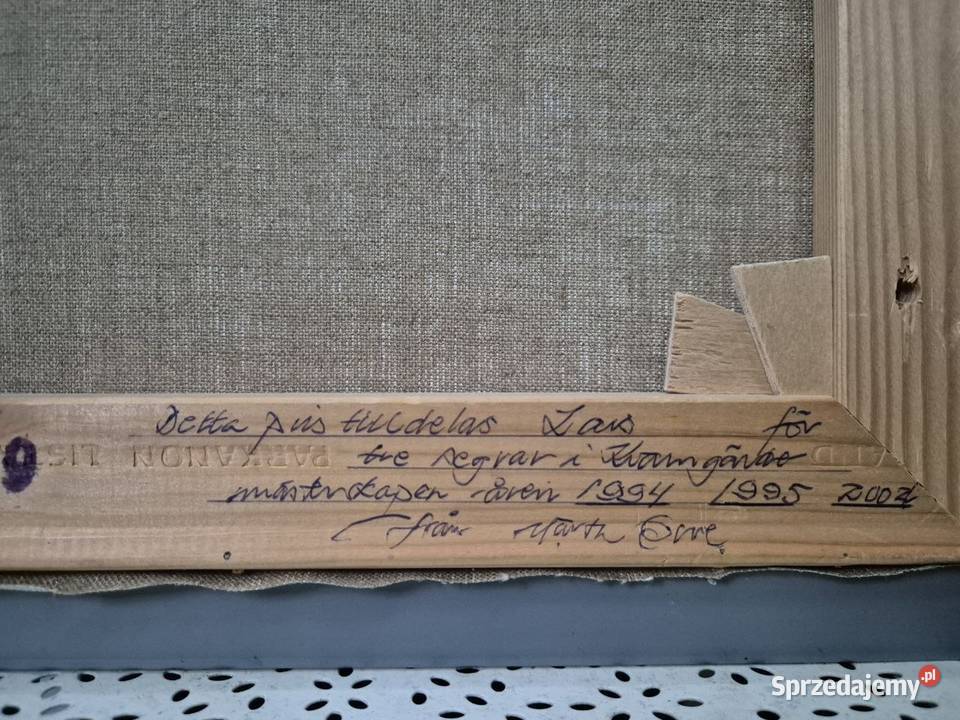 Detta pris tilldelas Lars för
PARKANON LIS
tre segrar i
mästerskapen åren 1994 1995 2002
från Märth
Sprzedajemy.pl